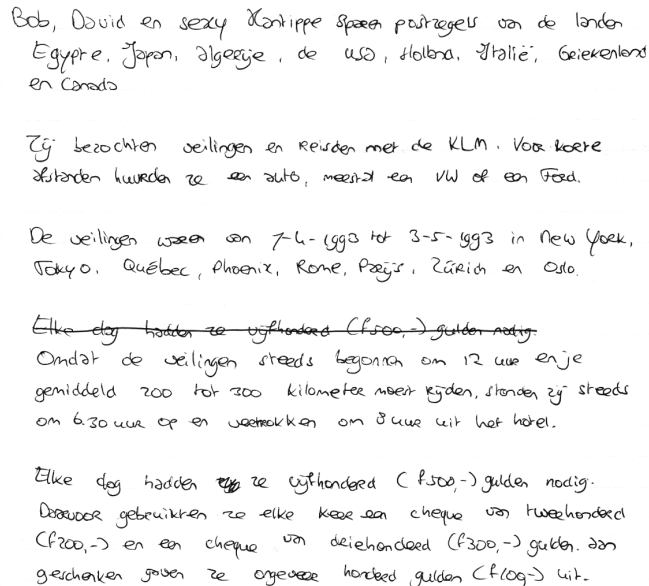 Bob, David en sexy Xantippe sparen postzegels van de landen
Egypte, Japan, Algerije, de USA, Holland, Italië, Griekenland
en Canada
Zij bezochten veilingen en Reisden met de KLM. Voor korte
afstanden huurden ze een auto, meestal een VW of een Ford.
De veilingen waren van 7-4-1993 tot 3-5-1993 in New York,
Tokyo, Québec, Phoenix, Rome, Parijs, Zürich en Oslo.
Elke dag hadden ze vijfhonderd (f500,-) gulden nodig.
Omdat de veilingen steeds begonnen om 12 uur en je
gemiddeld 200 tot 300 kilometer moest rijden, stonden zij steeds
om 6.30 uur op en vertrokken om 8 uur uit het hotel.
Elke dag hadden ze vijfhonderd (f500,-) gulden nodig.
Daarvoor gebruikten ze elke keer een cheque van tweehonderd
(f200,-) en een cheque van driehonderd (f300,-) gulden. Aan
geschenken gaven ze ongeveer honderd gulden (f100,-) uit.